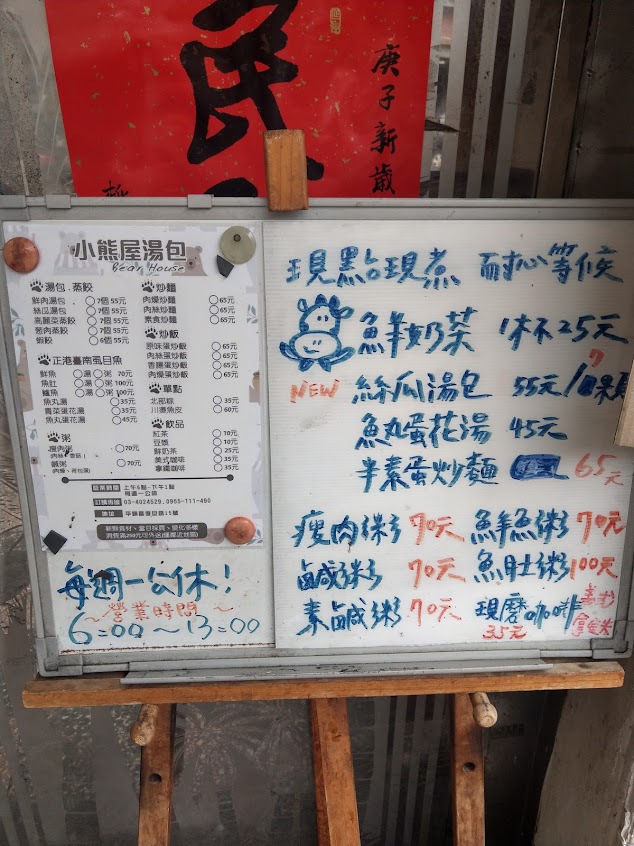 民
庚子新歲
小熊屋湯包
Bear House
湯包.蒸餃
鮮肉湯包 ○7個 55元
絲瓜湯包 ○7個 55元
高麗菜蒸餃 ○7個 55元
蔥肉蒸餃 ○7個 55元
蝦餃 ○6個 55元
正港臺南虱目魚
鮮魚 ○湯 ○粥 70元
魚肚 ○湯 ○粥 100元
鱸魚 ○湯 ○粥 100元
魚丸湯 ○35元
青菜蛋花湯 ○35元
魚丸蛋花湯 ○45元
粥
瘦肉粥 ○70元
鹹粥 ○70元
炒麵
肉燥炒麵 ○65元
肉絲炒麵 ○65元
素食炒麵 ○65元
炒飯
原味蛋炒飯 ○65元
肉絲蛋炒飯 ○65元
香腸蛋炒飯 ○65元
肉燥蛋炒飯 ○65元
單點
北部粽 ○35元
川燙魚皮 ○60元
飲品
紅茶 ○10元
豆漿 ○10元
鮮奶茶 ○25元
美式咖啡 ○35元
拿鐵咖啡 ○35元
營業時間 上午6點-下午1點
每週一公休
訂購專線 03-4024529.0955-111-490
地址
新鮮食材、當日採買、變化多樣
消費滿250元可外送(僅鄰近地區)
每週一公休!
~營業時間~
6:00~13:00
現點現煮 耐心等候
鮮奶茶 1杯25元
NEW 絲瓜湯包 55元/7顆
魚丸蛋花湯 45元
半素蛋炒麵 65元
瘦肉粥 70元 鮮魚粥 70元
鹹粥 70元 魚肚粥 100元
素鹹粥 70元 現磨咖啡 美式
35元 拿鐵